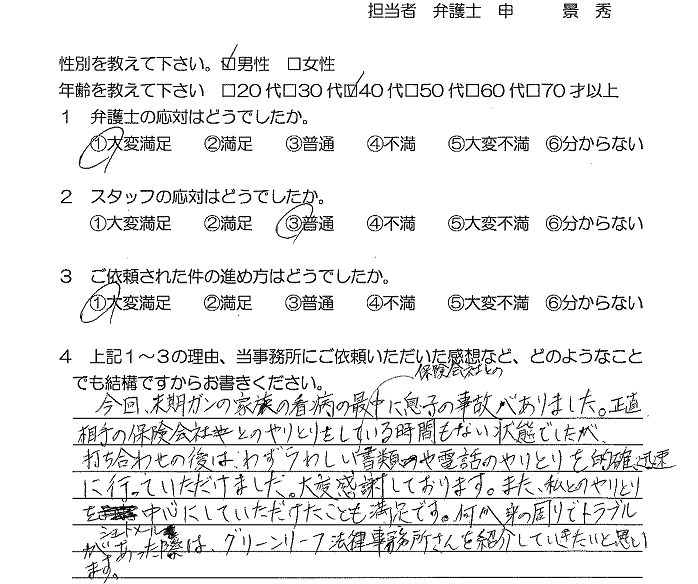 担当者 弁護士 申 景 秀
性別を教えて下さい。☑男性 □女性
年齢を教えて下さい □20代□30代☑40代□50代□60代□70才以上
1 弁護士の応対はどうでしたか。
①大変満足 ②満足 ③普通 ④不満 ⑤大変不満 ⑥分からない
2 スタッフの応対はどうでしたか。
①大変満足 ②満足 ③普通 ④不満 ⑤大変不満 ⑥分からない
3 ご依頼された件の進め方はどうでしたか。
①大変満足 ②満足 ③普通 ④不満 ⑤大変不満 ⑥分からない
4 上記1~3の理由、当事務所にご依頼いただいた感想など、どのようなこと
でも結構ですからお書きください。
保険会社との
今回、末期ガンの家族の看病の最中に息子の事故がありました。正直
相手の保険会社とのやりとりをしている時間もない状態でしたが、
打ち合わせの後は、わずらわしい書類や電話のやりとりを的確迅速
に行っていただけました。大変感謝しております。また、私とのやりとり
を 中心にしていただけたことも満足です。何か身の周りでトラブル
ショートメール
があった際は、グリーンリーフ法律事務所さんを紹介していきたいと思い
ます。